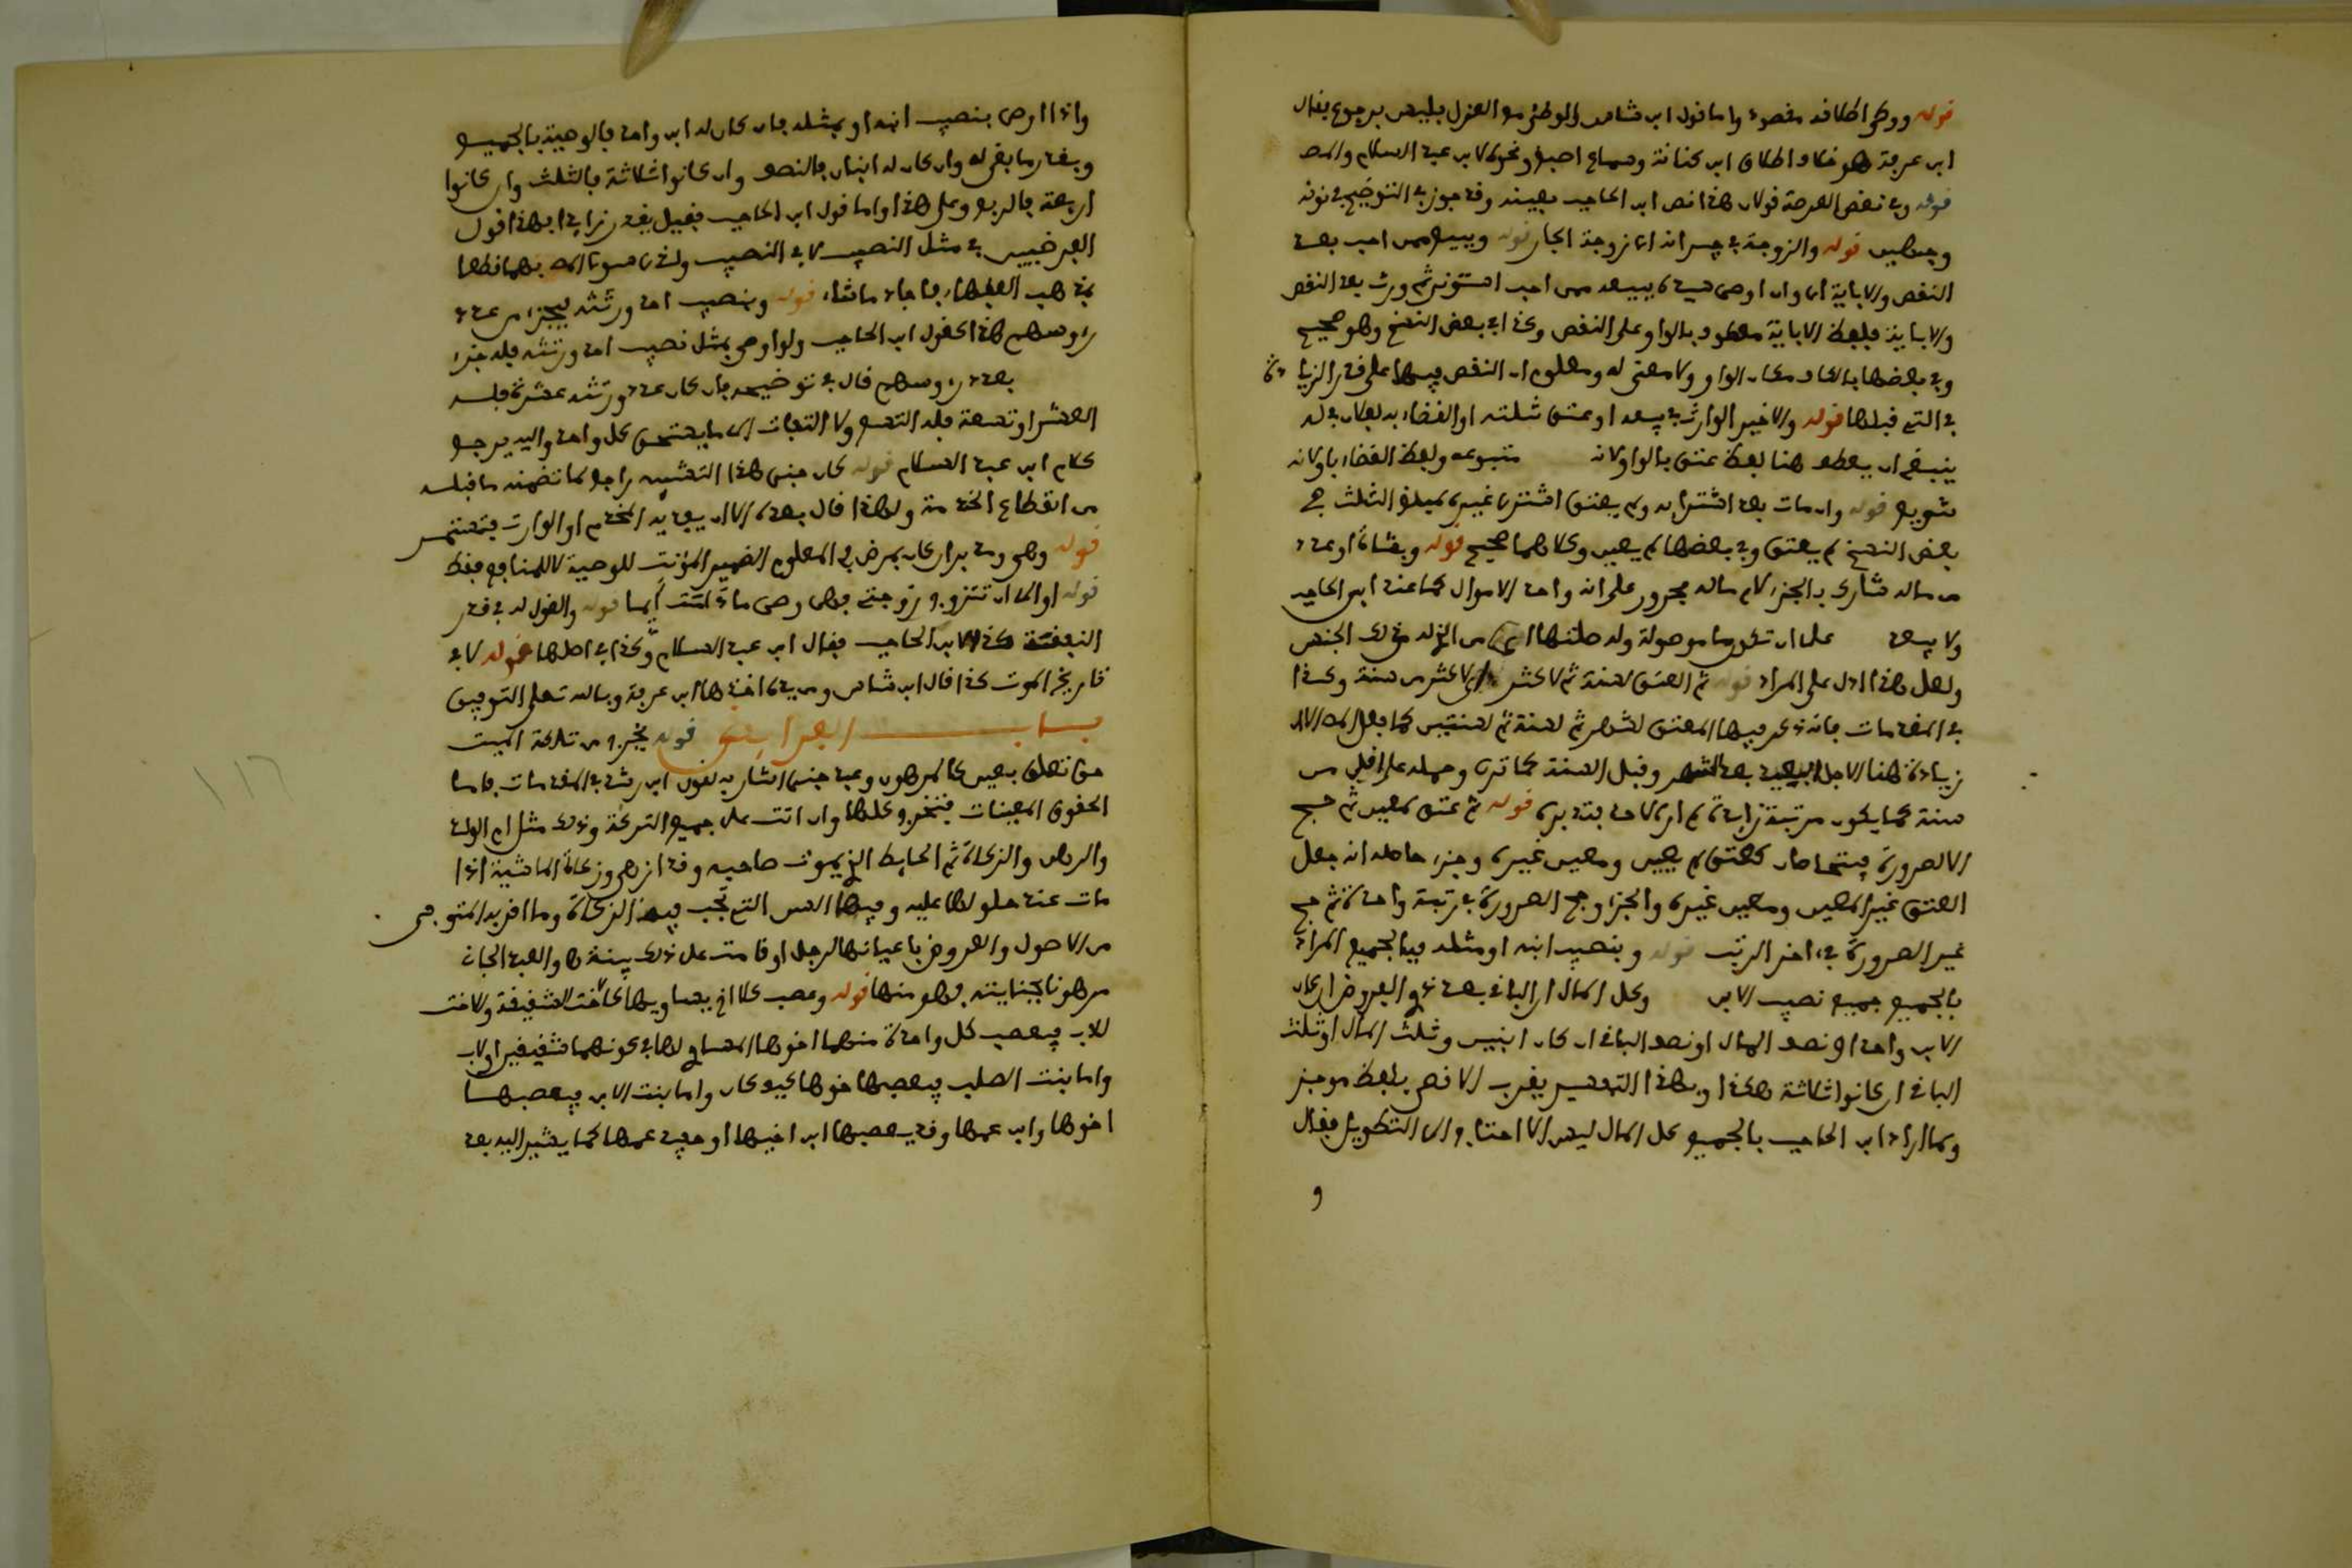 قوله ووطئ اطلاقه مقصود واما قول ابن شاس والوطئ مع العزل فليس برجوع فقال
ابن عرفة هو خلاف اطلاق ابن كنانة وسماع اصبغ ونحوه لابن عبد السلام والمص
قوله وفي نقض العرصة قولان هذا نص ابن الحاجب بعينه وقد جوز في التوضيح في نونه
وجهين قوله والزوجة في جيرانه اي زوجة الجار قوله وببيعه ممن احب بعد
النقص والاباية اي وان اوصى ببيعه ممن احب استؤنى ثم ورث بعد النقص
والاباية فلفظ الاباية معطوف بالواو على النقص وكذا في بعض النسخ وهو صحيح
وفي بعضها بالكاف مكان الواو ولا معنى له ومعلوم ان النقص فيها على قدر الزيادة
في التي قبلها قوله والا خير الوارث في بيعه او عتق ثلثه او القضاء به لفلان في له
ينبغي ان يعطف هنا لفظ عتق بالواو لانه متبوعه ولفظ القضاء باو لانه
تنويع قوله وان مات بعد اشترائه ولم يعتق اشتري غيره لمبلغ الثلث في
بعض النسخ لم يعتق وفي بعضها لم يعين وكلاهما صحيح قوله وبشاة او عدد
من ماله شارك بالجزء لام ماله مجرور على انه واحد الاموال كما عند ابن الحاجب
ولا يبعد على ان تكون ما موصولة وله صلتها اي من الذي له من ذلك الجنس
ولعل هذا ادل على المراد قوله ثم العتق لسنة ثم لاكثر اي لاكثر من سنة وكذا
في المقدمات فانه ذكر فيها المعتق لشهر ثم لسنة ثم لسنتين كما فعل المص الا ان
زيادة هنا الاجل البعيد بعد الشهر وقبل السنة كما ترى وحمله على اقل من
سنة كما يكون مرتبة زائدة لم اره لاحد فتدبره قوله ثم عتق لمعين ثم حج
الا لصرورة فيتحاصان كعتق لم يعين ومعين غيره وجزء حاصله انه جعل
العتق غير المعين ومعين غيره والجزء وحج الصرورة في رتبة واحدة ثم حج
غير الصرورة في اخر الرتب قوله وبنصيب ابنه او مثله فبالجميع المراد
بالجميع جميع نصيب الابن وكل المال او الباقي بعد ذوي الفروض ان كان
الابن واحدا ونصف المال او نصف الباقي ان كان ابنين وثلث المال او ثلث
الباقي ان كانوا ثلاثة هكذا وبهذا التفسير يقرب الاقصى بلفظ موجز
ولما اراد ابن الحاجب بالجميع كل المال ليس الا احتاج الى التطويل فقال
و
واذا اوصى بنصيب ابنه او بمثله فان كان له ابن واحد فالوصية بالجميع
وبقدر ما بقي له وان كان له ابنان فالنصف وان كانوا ثلاثة فالثلث وان كانوا
اربعة فالربع وعلى هذا واما قول ابن الحاجب فقيل يقدر زائدا فهذا قول
الفرضيين في مثل النصيب لا في النصيب ولذا سوى المص بينهما فطعا
بمذهب الفقهاء فاجاد ما شاء قوله وبنصيب احد ورثته فبجزء من عدد
رءوسهم هذا كقول ابن الحاجب ولو اوصى بمثل نصيب احد ورثته فله جزء
بعدد رءوسهم قال في توضيحه فان كان عدد ورثته عشرة فله
العشر او تسعة فله التسع ولا التفات الى ما يستحق كل واحد واليه يرجع
كلام ابن عبد السلام قوله كان جنى هذا التشبيه راجع لما تضمنه ما قبله
من انقطاع الخدمة ولهذا قال بعده الا ان يفديه المخدم او الوارث فتستمر
قوله وهي ومدبر ان كان بمرض في المعلوم الضمير المؤنث للوصية لا للمنافع فقط
قوله او الى ان تتزوج زوجتي فهي وصي ما دامت ايما قوله والقول له في قدر
النفقة كذا لابن الحاجب فقال ابن عبد السلام وكذا في اصلها قوله لا في
تاريخ الموت كذا قال ابن شاس ومن يده اخذها ابن عرفة وبالله تعلى التوفيق
باب الفرائض قوله يخرج من تركة الميت
حق تعلق بعين كالمرهون وعبد جنى اشار به لقول ابن رشد في المقدمات فاما
الحقوق المعينات فتخرج كلها وان اتت على جميع التركة وذلك مثل ام الولد
والرهن والزكاة ثم الحايط الذي يموت صاحبه وقد ازهى وزكاة الماشية اذا
مات عند حلولها عليه وفيها السن التي تجب فيه الزكاة وما اقر به المتوفى
من الاصول والعروض باعيانها لرجل او قامت على ذلك بينة والعبد الجان
مرهونا بجنايته فهو منها قوله وعصب كلا اخ يساويها كالاخت الشقيقة والاخت
للاب يعصب كل واحدة منهما اخوها المساوي لها في كونهما شقيقين او لاب
واما بنت الصلب فيعصبها اخوها كيف كان واما بنت الابن فيعصبها
اخوها وابن عمها وقد يعصبها ابن اخيها او حفيد عمها كما يشير اليه بعد
١١٦